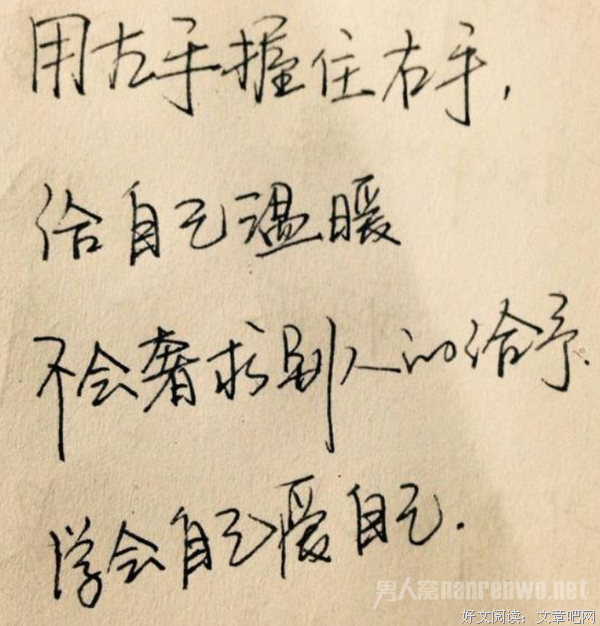 用左手握住右手,
给自己温暖
不会奢求别人的给予.
学会自己爱自己.
男人窝nanrenwo.net
好文阅读:文章吧网